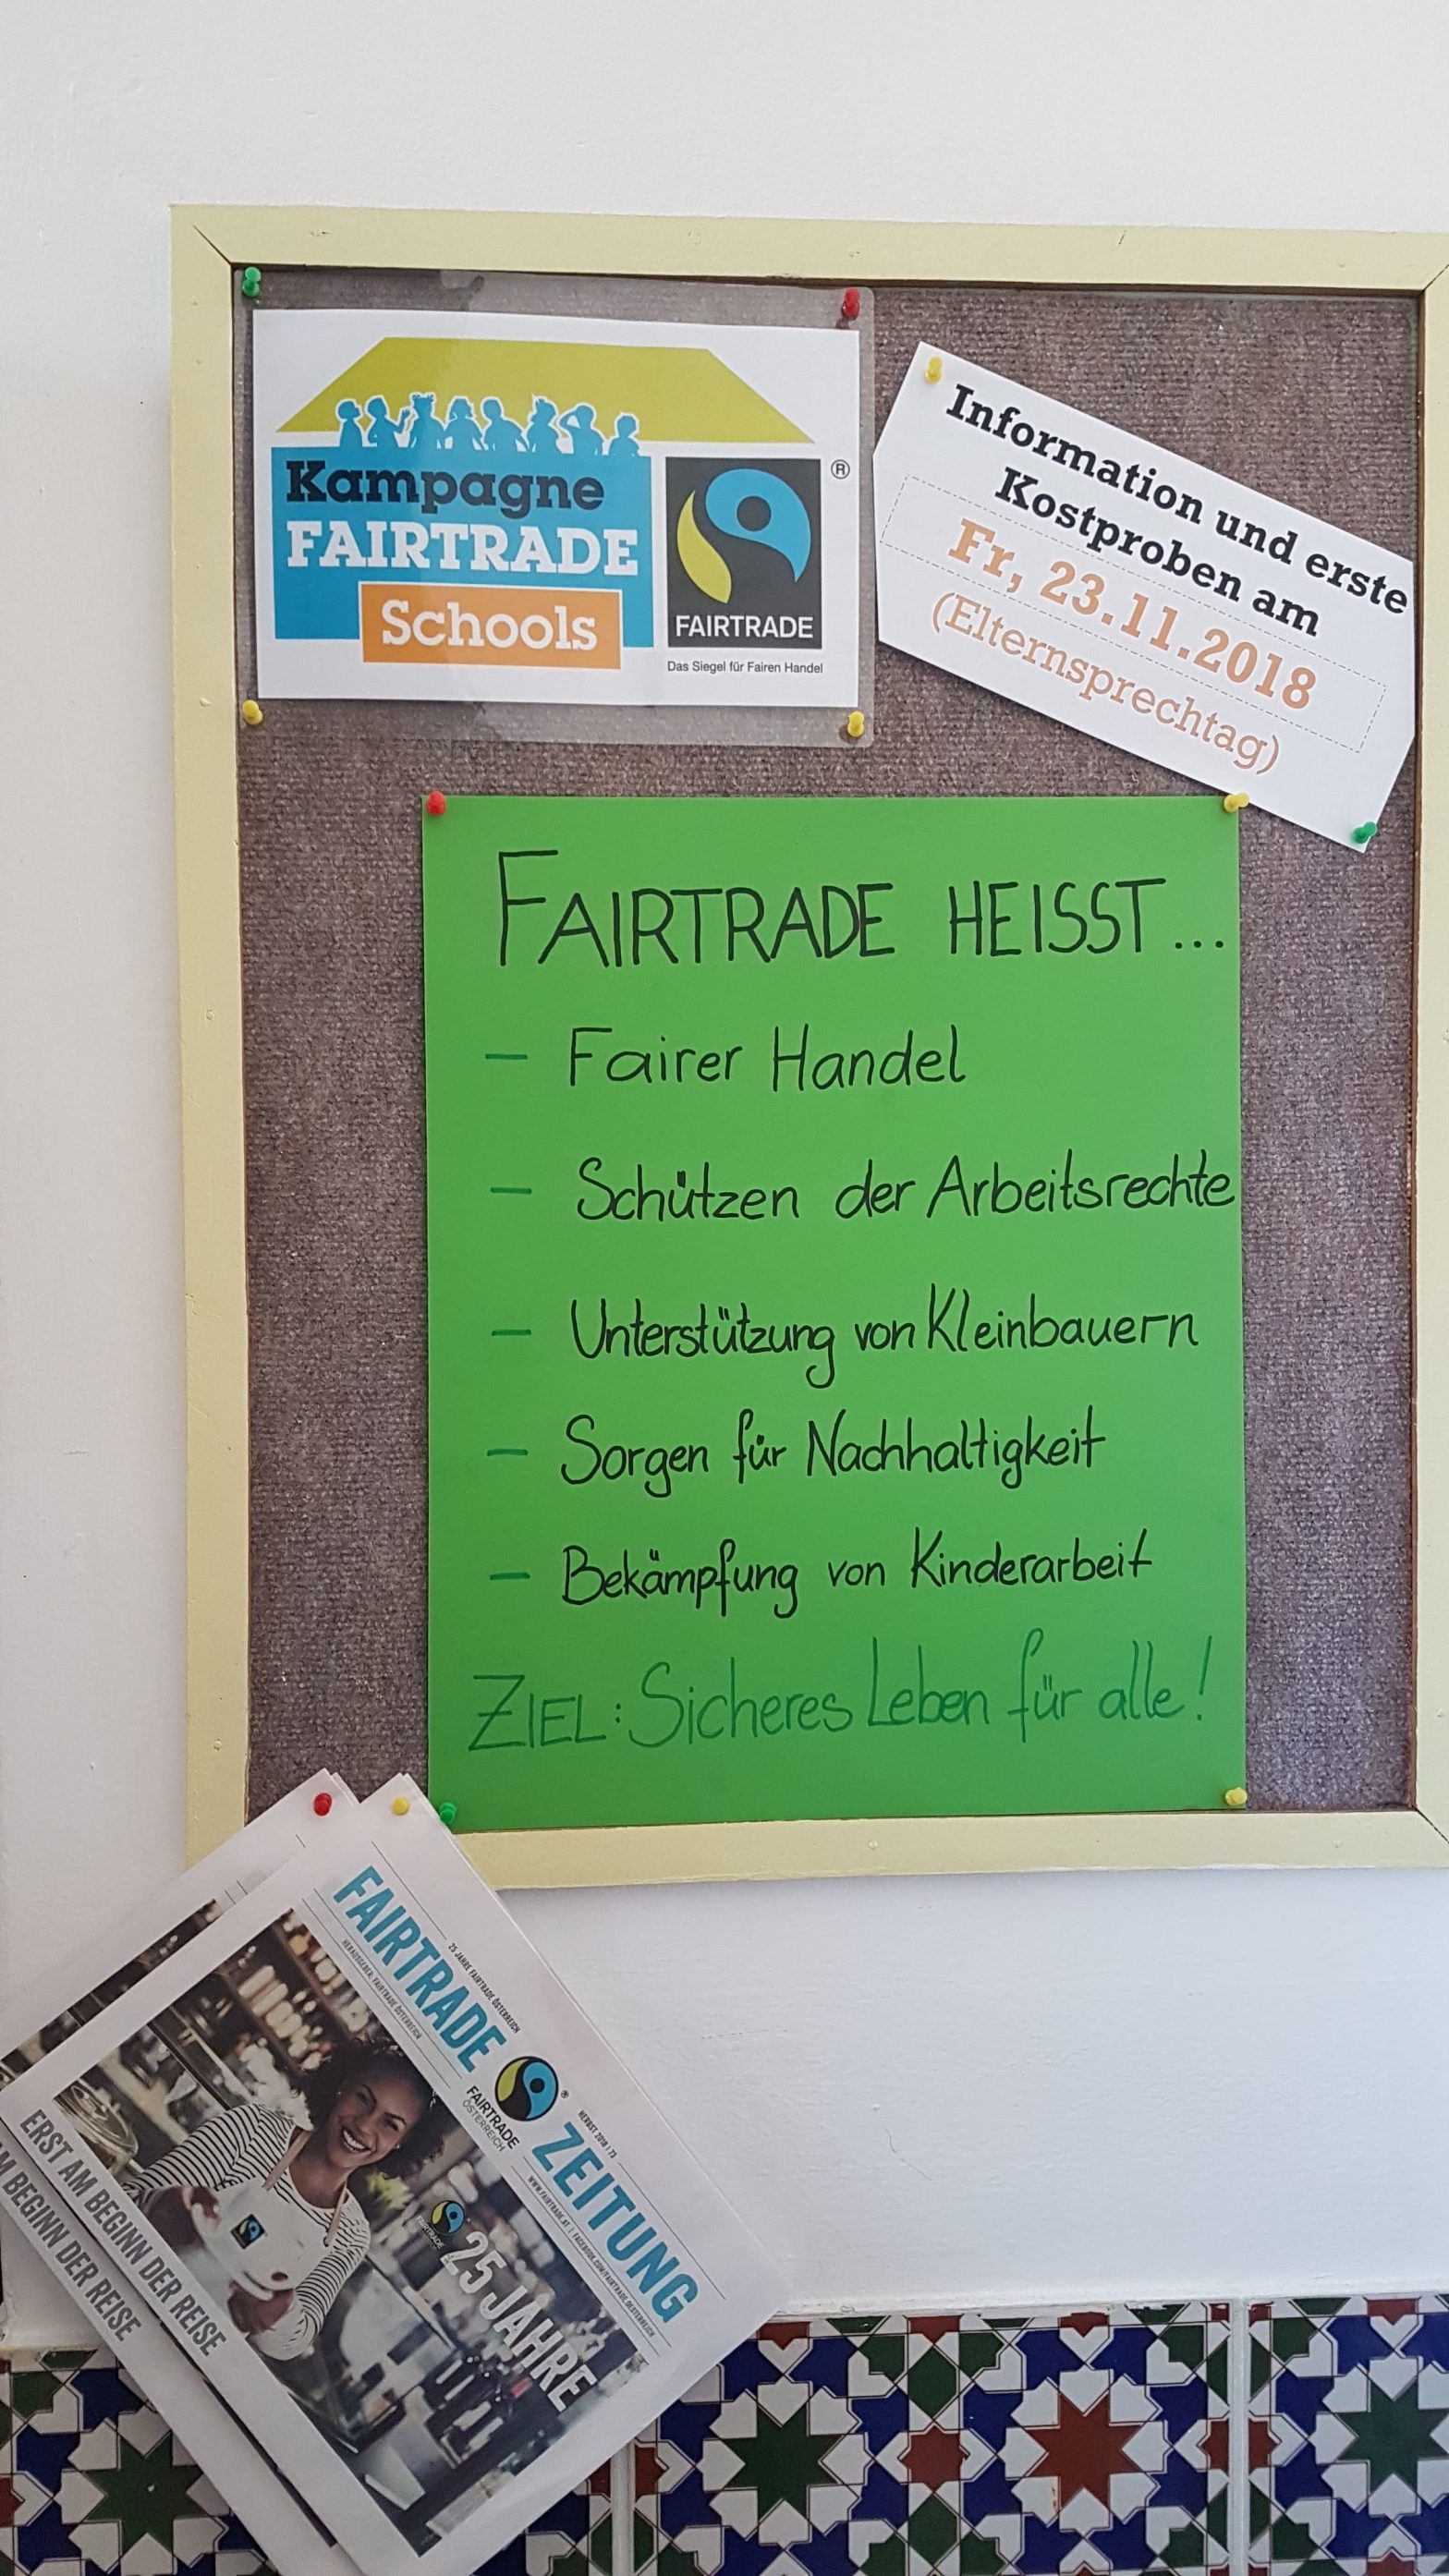 Kampagne
FAIRTRADE
Schools
®
FAIRTRADE
Das Siegel für Fairen Handel
Information und erste
Kostproben am
Fr, 23.11.2018
(Elternsprechtag)
FAIRTRADE HEISST...
– Fairer Handel
– Schützen der Arbeitsrechte
– Unterstützung von Kleinbauern
– Sorgen für Nachhaltigkeit
– Bekämpfung von Kinderarbeit
ZIEL: Sicheres Leben für alle!
25 JAHRE FAIRTRADE ÖSTERREICH
FAIRTRADE ZEITUNG
HERAUSGEBER: FAIRTRADE ÖSTERREICH
®
FAIRTRADE
ÖSTERREICH
HERBST 2018 | 23
WWW.FAIRTRADE.AT | FACEBOOK.COM/FAIRTRADE.OESTERREICH
FAIRTRADE
25 JAHRE
ERST AM BEGINN DER REISE
AM BEGINN DER REISE